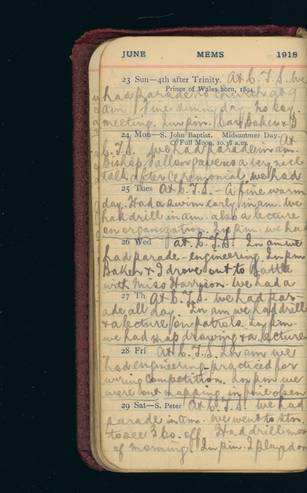 JUNE MEMS 1918
23 Sun—4th after Trinity. At C.T.S. We
Prince of Wales born, 1894.
had parade to church at 9
a.m. Fine sunny day. no
meeting. In p.m. Baker & I
24 Mon—S. John Baptist. Midsummer Day. At
Full Moon, 10.38 a.m.
C.T.S. We had parade in a.m.
Bishop Fallow gave us a very nice
talk after ceremonial. We had
25 Tues At C.T.S. - A fine warm
day. Had a swim early in a.m. We
had drill in a.m. also a lecture
on organization. In p.m. we had
26 Wed at C.T.S. In a.m. we
had parade - engineering. In p.m.
Baker & I drove out to Battle
with Miss Harrison. We had a
27 Th At C.T.S. We had par-
ade all day. In a.m. we had drill
& a lecture on patrols. In p.m.
we had map drawing & a lecture
28 Fri At C.T.S. In a.m. we
had engineering - practiced for
wiring competition. In p.m. we
were out mapping in
29 Sat—S. Peter At C.T.S. We had
parade in a.m. We went to stn.
to see 3 Co. off. Had drill most
of morning. In p.m. I played on